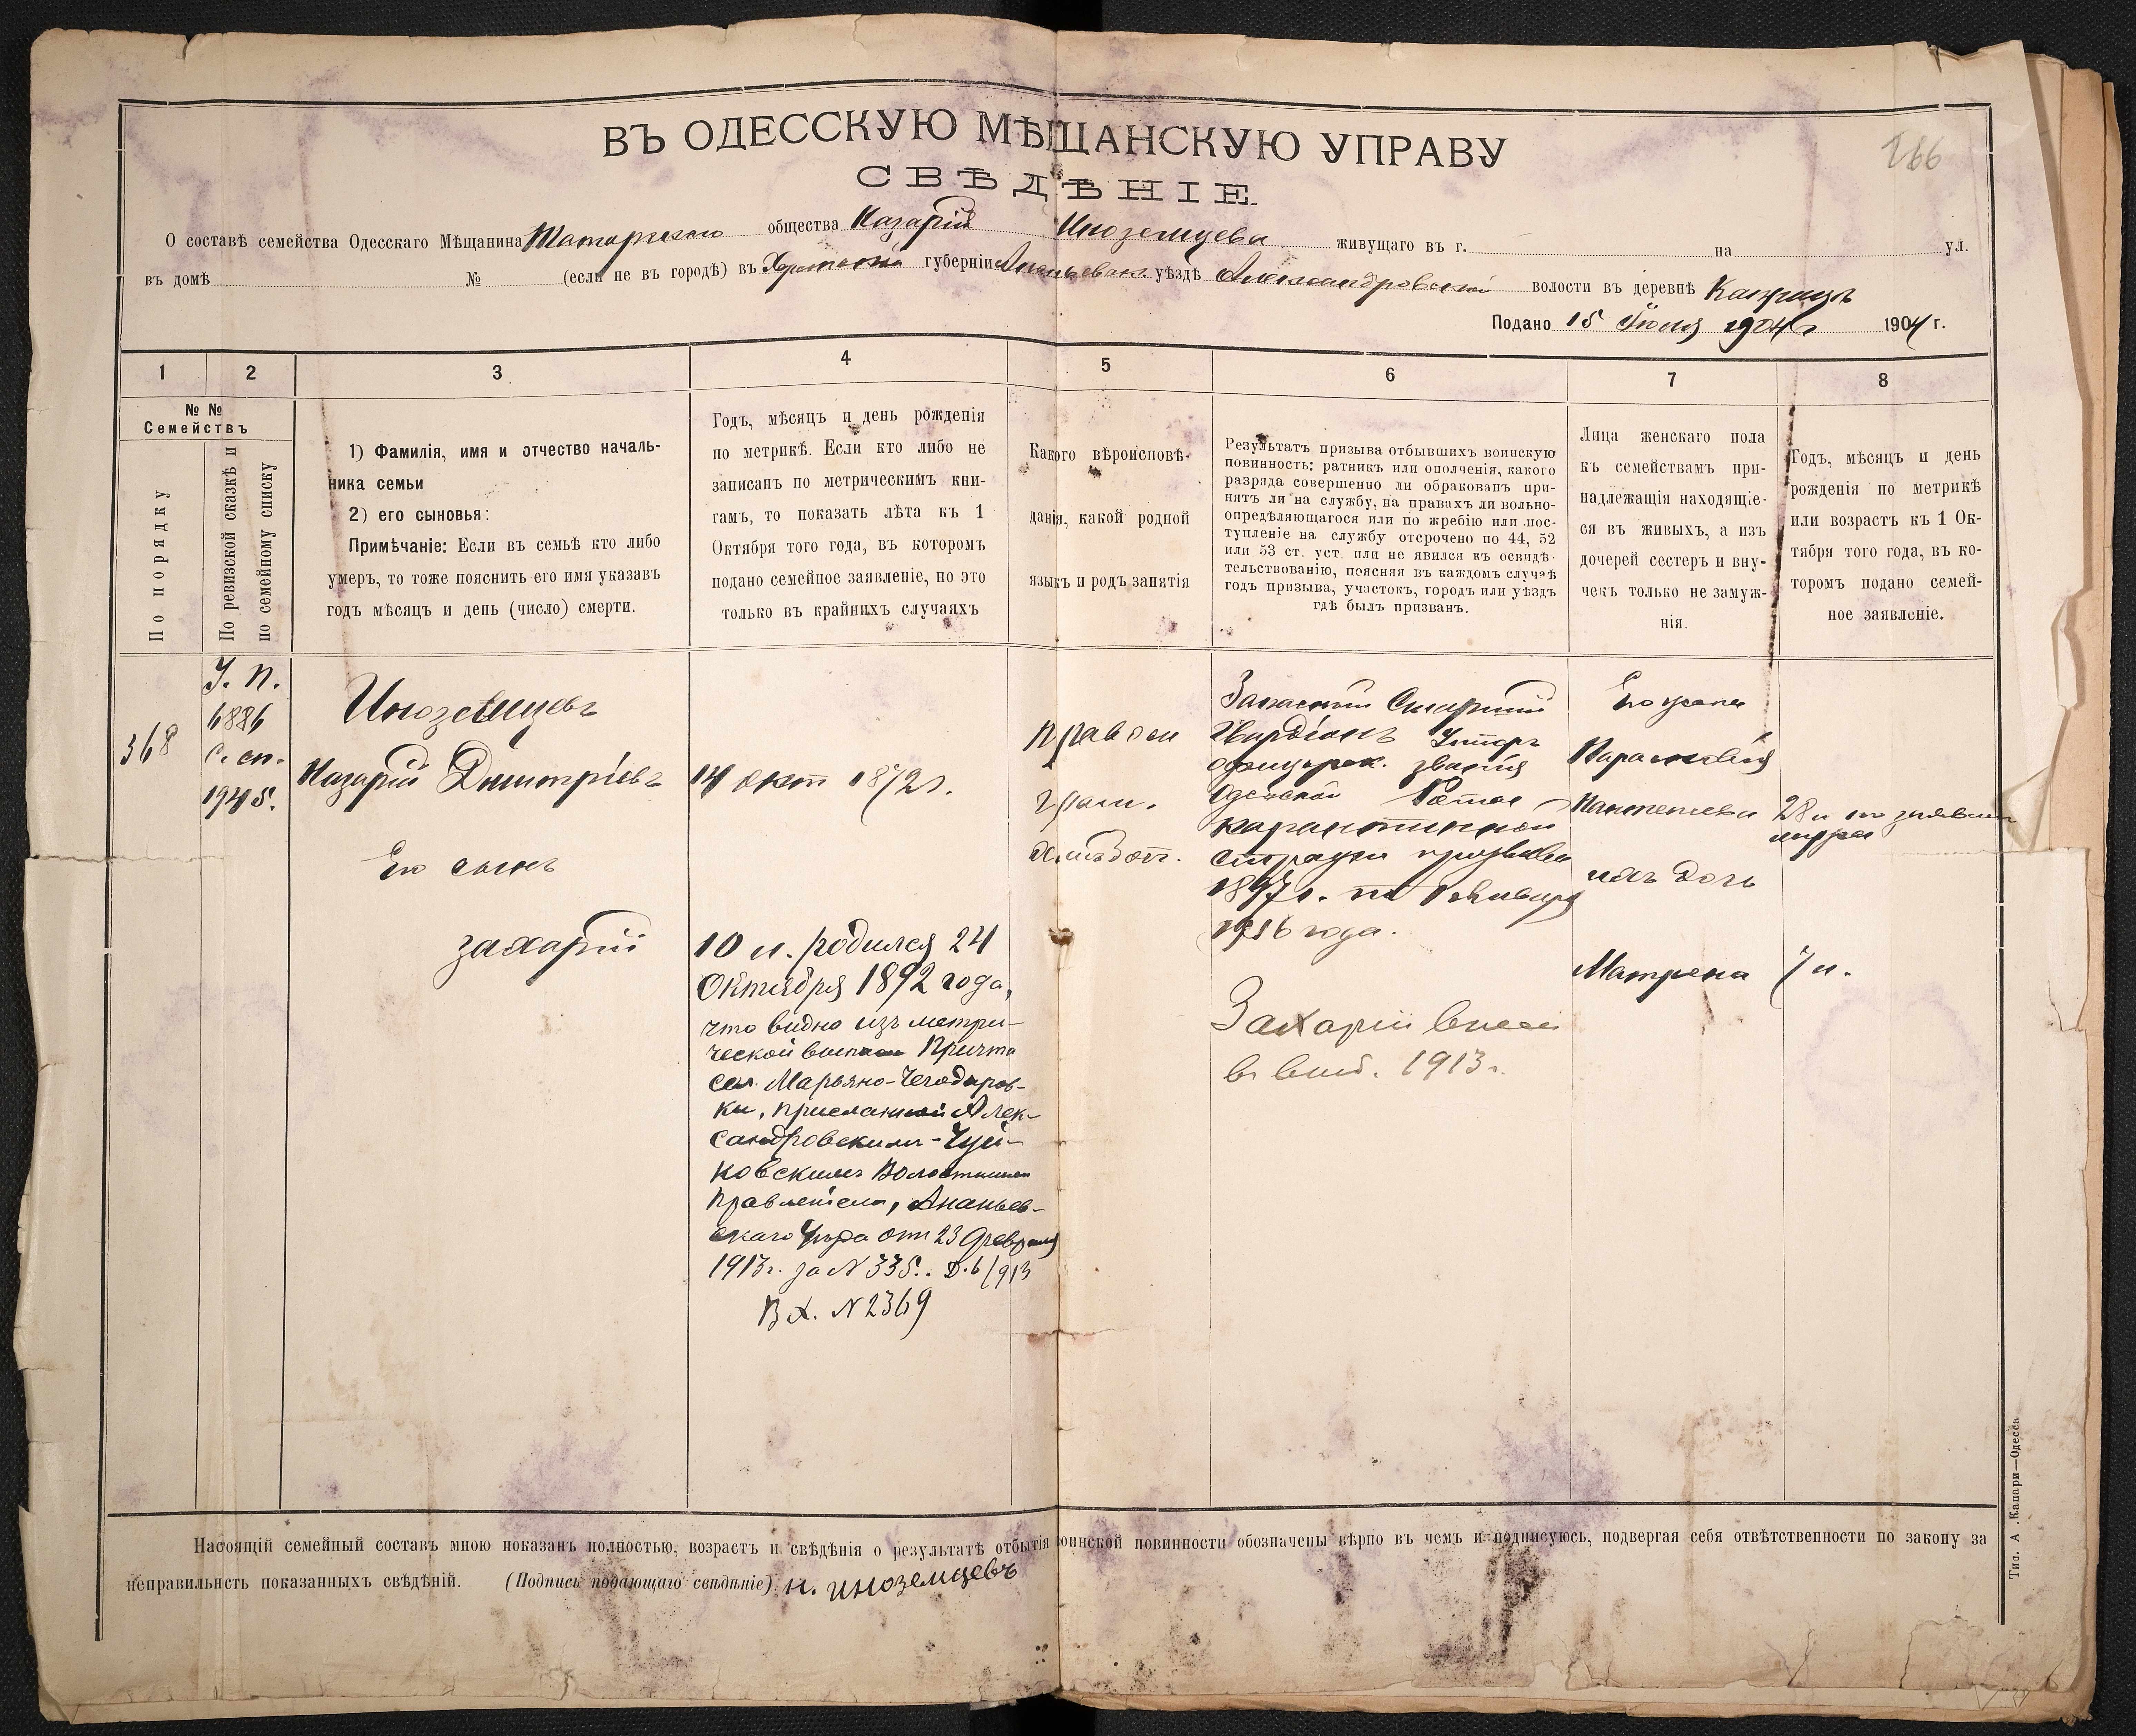 266
ВЪ ОДЕССКУЮ МѢЩАНСКУЮ УПРАВУ
СВѢДѢНІЕ.
О составѣ семейства Одесскаго Мѣщанина Татарскаго общества Назарій Иноземцева живущаго въ г. на ул.
въ домѣ № (если не въ городѣ) въ Херсонской губерніи Ананьевск. уѣздѣ Александровской волости въ деревнѣ
Подано 15 Іюля 1904 г 1904 г.
1 2 3 4 5 6 7 8
№ №
Семействъ
По порядку
По ревизской сказкѣ и
по семейному списку
1) Фамилія, имя и отчество началь-
ника семьи
2) его сыновья:
Примѣчаніе: Если въ семьѣ кто либо
умеръ, то тоже пояснить его имя указавъ
годъ мѣсяцъ и день (число) смерти.
Годъ, мѣсяцъ и день рожденія
по метрикѣ. Если кто либо не
записанъ по метрическимъ кни-
гамъ, то показать лѣта къ 1
Октября того года, въ которомъ
подано семейное заявленіе, но это
только въ крайнихъ случаяхъ
Какого вѣроисповѣ-
данія, какой родной
языкъ и родъ занятія
Результатъ призыва отбывшихъ воинскую
повинность: ратникъ или ополченія, какого
разряда совершенно ли обракованъ при-
нятъ ли на службу, на правахъ ли вольно-
опредѣляющагося или по жребію или пос-
тупленіе на службу отсрочено по 44, 52
или 53 ст. уст. или не явился къ освидѣ-
тельствованію, поясняя въ каждомъ случаѣ
годъ призыва, участокъ, городъ или уѣздъ
гдѣ былъ призванъ.
Лица женскаго пола
къ семействамъ при-
надлежащія находящіе-
ся въ живыхъ, а изъ
дочерей сестеръ и вну-
чекъ только не замуж-
нія.
Годъ, мѣсяцъ и день
рожденія по метрикѣ
или возрастъ къ 1 Ок-
тября того года, въ ко-
торомъ подано семей-
ное заявленіе.
368
У. П.
6886
С. сп.
1945.
Иноземцевъ
Назарій Дмитріевъ
Его сынъ
Захарій
14 окт 1872 г.
10 л. родился 24
Октября 1892 года,
что видно изъ метри-
ческой выписи Причта
сел. Марьяно-Чегодаров-
ки, присланной Алек-
сандровскимъ-Чуй-
ковскимъ Волостнымъ
Правленіем, Ананьев-
скаго Уѣзда отъ 23 Февраля
1913 г. за N 335. Д. 6/913
Вх. N 2369
Правосл
грам.
хлѣбоп.
Запасный Старшій
Унтеръ
офицерск. званія
Одесской Роты
карантинной
стражи призыва
1897 г. по 1 Января
1916 года.
Захарій внесен
в выб. 1913 г.
Его жена
Парасковія
Пантелеева
ихъ дочь
Матрена
28 л по
7 л.
Настоящій семейный составъ мною показанъ полностью, возрастъ и свѣдѣнія о результатѣ отбытія воинской повинности обозначены вѣрно въ чемъ и подписуюсь, подвергая себя отвѣтственности по закону за
неправильность показанныхъ свѣдѣній. (Подпись подающаго свѣдѣніе). Н. Иноземцевъ
Тип. А. Капари—Одесса